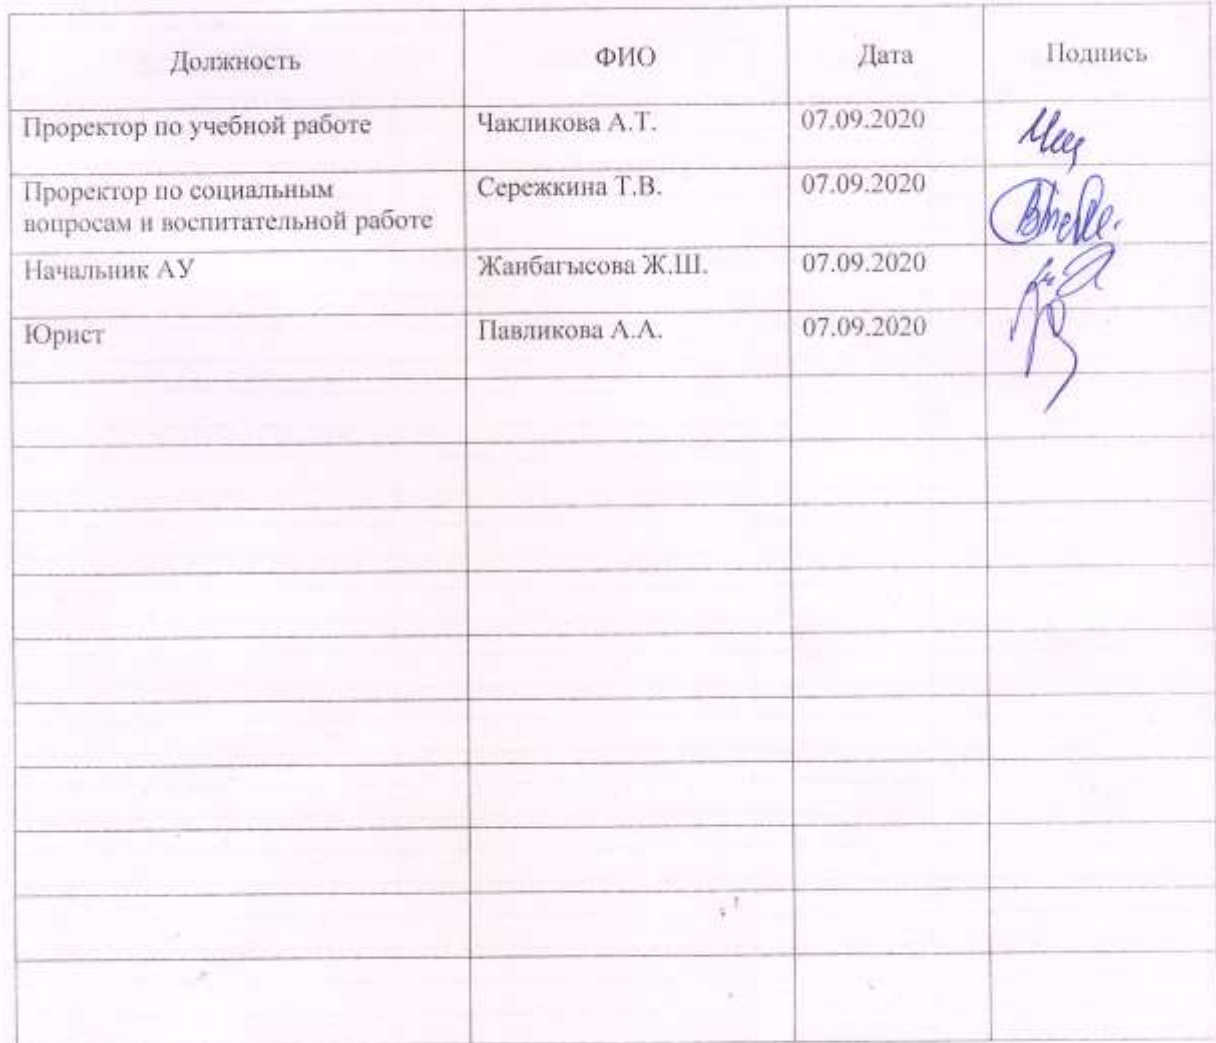 Должность ФИО Дата Подпись
Проректор по учебной работе Чакликова А.Т. 07.09.2020
Проректор по социальным Сережкина Т.В. 07.09.2020
вопросам и воспитательной работе
Начальник АУ Жанбагысова Ж.Ш. 07.09.2020
Юрист Павликова А.А. 07.09.2020